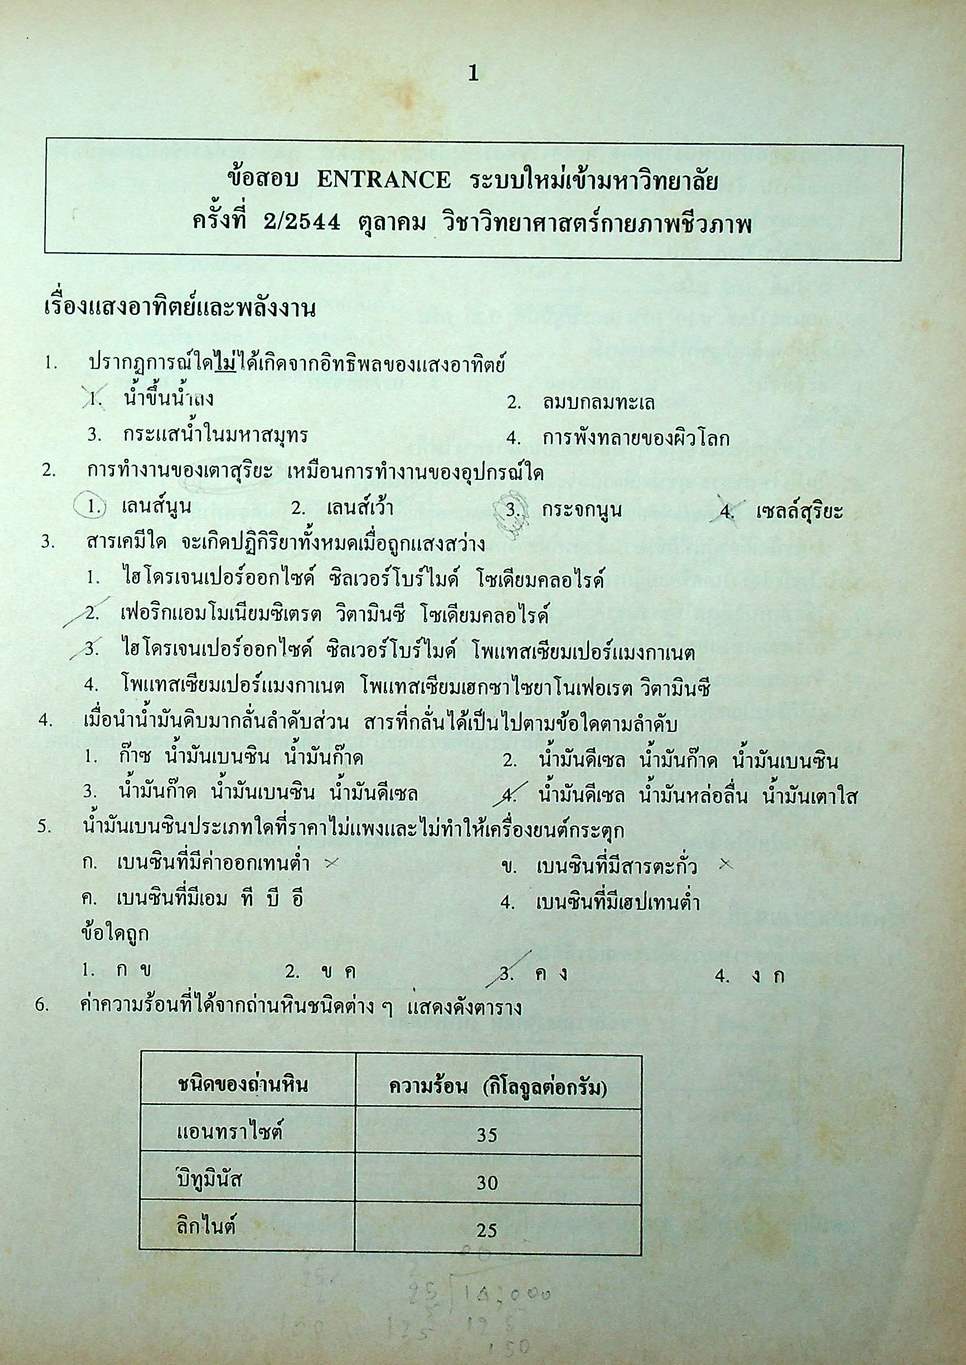 1
ข้อสอบ ENTRANCE ระบบใหม่เข้ามหาวิทยาลัย
ครั้งที่ 2/2544 ตุลาคม วิชาวิทยาศาสตร์กายภาพชีวภาพ
เรื่องแสงอาทิตย์และพลังงาน
1. ปรากฏการณ์ใดไม่ได้เกิดจากอิทธิพลของแสงอาทิตย์
1. น้ำขึ้นน้ำลง 2. ลมบกลมทะเล
3. กระแสน้ำในมหาสมุทร 4. การพังทลายของผิวโลก
2. การทำงานของเตาสุริยะ เหมือนการทำงานของอุปกรณ์ใด
1. เลนส์นูน 2. เลนส์เว้า 3. กระจกนูน 4. เซลล์สุริยะ
3. สารเคมีใด จะเกิดปฏิกิริยาทั้งหมดเมื่อถูกแสงสว่าง
1. ไฮโดรเจนเปอร์ออกไซด์ ซิลเวอร์โบร์ไมด์ โซเดียมคลอไรด์
2. เฟอริกแอมโมเนียมซิเตรต วิตามินซี โซเดียมคลอไรด์
3. ไฮโดรเจนเปอร์ออกไซด์ ซิลเวอร์โบร์ไมด์ โพแทสเซียมเปอร์แมงกาเนต
4. โพแทสเซียมเปอร์แมงกาเนต โพแทสเซียมเฮกซาไซยาโนเฟอเรต วิตามินซี
4. เมื่อนำน้ำมันดิบมากลั่นลำดับส่วน สารที่กลั่นได้เป็นไปตามข้อใดตามลำดับ
1. ก๊าซ น้ำมันเบนซิน น้ำมันก๊าด 2. น้ำมันดีเซล น้ำมันก๊าด น้ำมันเบนซิน
3. น้ำมันก๊าด น้ำมันเบนซิน น้ำมันดีเซล 4. น้ำมันดีเซล น้ำมันหล่อลื่น น้ำมันเตาใส
5. น้ำมันเบนซินประเภทใดที่ราคาไม่แพงและไม่ทำให้เครื่องยนต์กระตุก
ก. เบนซินที่มีค่าออกเทนต่ำ ข. เบนซินที่มีสารตะกั่ว
ค. เบนซินที่มีเอม ที บี อี 4. เบนซินที่มีเฮปเทนต่ำ
ข้อใดถูก
1. ก ข 2. ข ค 3. ค ง 4. ง ก
6. ค่าความร้อนที่ได้จากถ่านหินชนิดต่าง ๆ แสดงดังตาราง
ชนิดของถ่านหิน ความร้อน (กิโลจูลต่อกรัม)
แอนทราไซต์ 35
บิทูมินัส 30
ลิกไนต์ 25